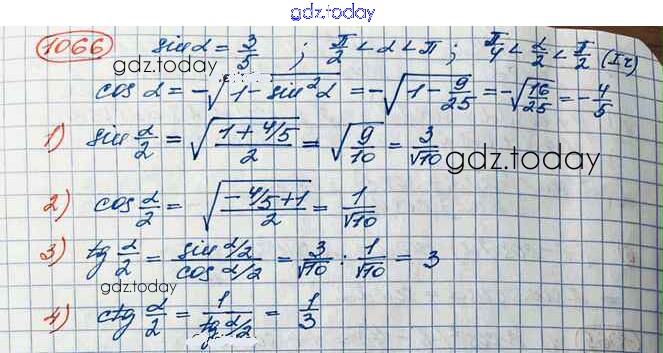 gdz.today
1066 sin α = 3/5 ; π/2 < α < π ; π/4 < α/2 < π/2 (I ч)
gdz.today
cos α = -√(1 - sin²α) = -√(1 - 9/25) = -√(16/25) = -4/5
1) sin α/2 = √((1 + 4/5)/2) = √(9/10) = 3/√10
gdz.today
2) cos α/2 = √((-4/5 + 1)/2) = 1/√10
3) tg α/2 = (sin α/2)/(cos α/2) = 3/√10 : 1/√10 = 3
gdz.today
4) ctg α/2 = 1/(tg α/2) = 1/3